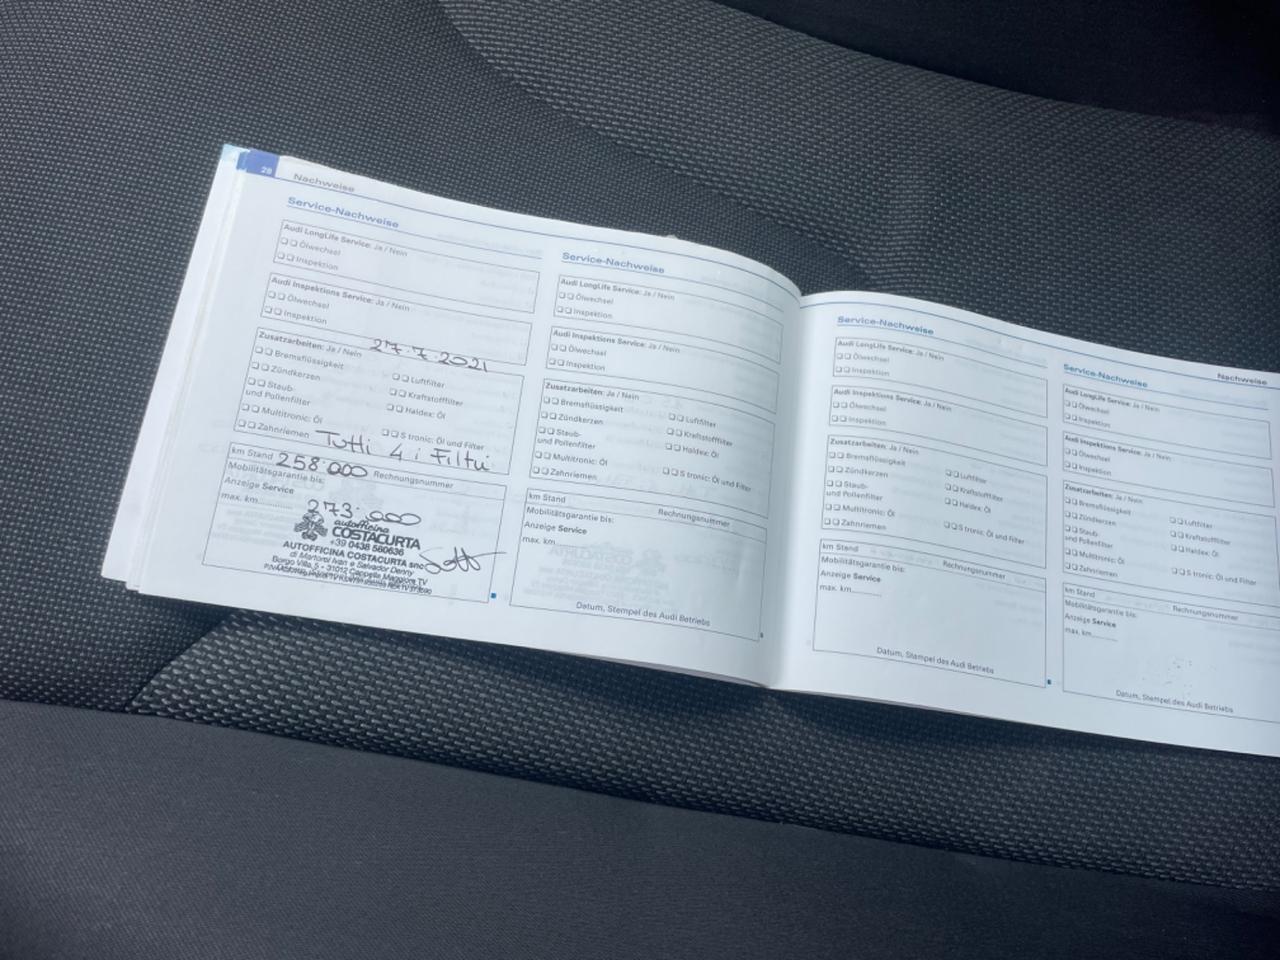 28 Nachweise
Service-Nachweise
Audi LongLife Service: Ja / Nein
Ölwechsel
Inspektion
Audi Inspektions Service: Ja / Nein
Ölwechsel
Inspektion
27.7.2021
Zusatzarbeiten: Ja / Nein
Bremsflüssigkeit
Luftfilter
Zündkerzen
Kraftstofffilter
Staub-
und Pollenfilter
Haldex: Öl
Multitronic: Öl
S tronic: Öl und Filter
Zahnriemen
Tutti 4 i Filtri
km Stand 258.000 Rechnungsnummer
Mobilitätsgarantie bis:
Anzeige Service
max. km
273.000
autofficina
COSTACURTA
+39 0438 580636
AUTOFFICINA COSTACURTA snc
di Martorel Ivan e Salvador Denny
Borgo Villa, 5 - 31012 Cappella Maggiore TV
Service-Nachweise
Audi LongLife Service: Ja / Nein
Ölwechsel
Inspektion
Audi Inspektions Service: Ja / Nein
Ölwechsel
Inspektion
Zusatzarbeiten: Ja / Nein
Bremsflüssigkeit
Luftfilter
Zündkerzen
Kraftstofffilter
Staub-
und Pollenfilter
Haldex: Öl
Multitronic: Öl
S tronic: Öl und Filter
Zahnriemen
km Stand Rechnungsnummer
Mobilitätsgarantie bis:
Anzeige Service
max. km
Datum, Stempel des Audi Betriebs
Service-Nachweise
Audi LongLife Service: Ja / Nein
Ölwechsel
Inspektion
Audi Inspektions Service: Ja / Nein
Ölwechsel
Inspektion
Zusatzarbeiten: Ja / Nein
Bremsflüssigkeit
Luftfilter
Zündkerzen
Kraftstofffilter
Staub-
und Pollenfilter
Haldex: Öl
Multitronic: Öl
S tronic: Öl und Filter
Zahnriemen
km Stand Rechnungsnummer
Mobilitätsgarantie bis:
Anzeige Service
max. km
Datum, Stempel des Audi Betriebs
Nachweise
Service-Nachweise
Audi LongLife Service: Ja / Nein
Ölwechsel
Inspektion
Audi Inspektions Service: Ja / Nein
Ölwechsel
Inspektion
Zusatzarbeiten: Ja / Nein
Bremsflüssigkeit
Luftfilter
Zündkerzen
Kraftstofffilter
Staub-
und Pollenfilter
Haldex: Öl
Multitronic: Öl
S tronic: Öl und Filter
Zahnriemen
km Stand Rechnungsnummer
Mobilitätsgarantie bis:
Anzeige Service
max. km
Datum, Stempel des Audi Betriebs